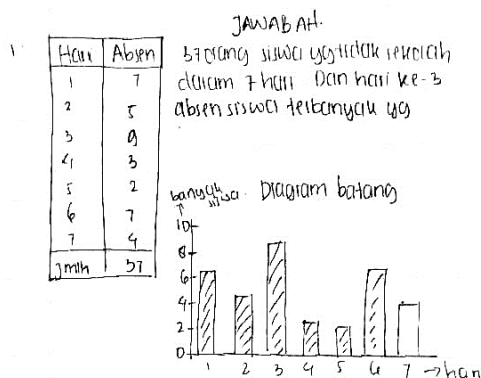 JAWABAH.
1.
Hari Absen
1 7
2 5
3 9
4 3
5 2
6 7
7 4
Jmlh 37
37 orang siswa yg tidak sekolah
dalam 7 hari Dan hari ke-3
absen siswa terbanyak yg
banyak siswa. Diagram batang
10
8
6
4
2
0
1 2 3 4 5 6 7 → hari